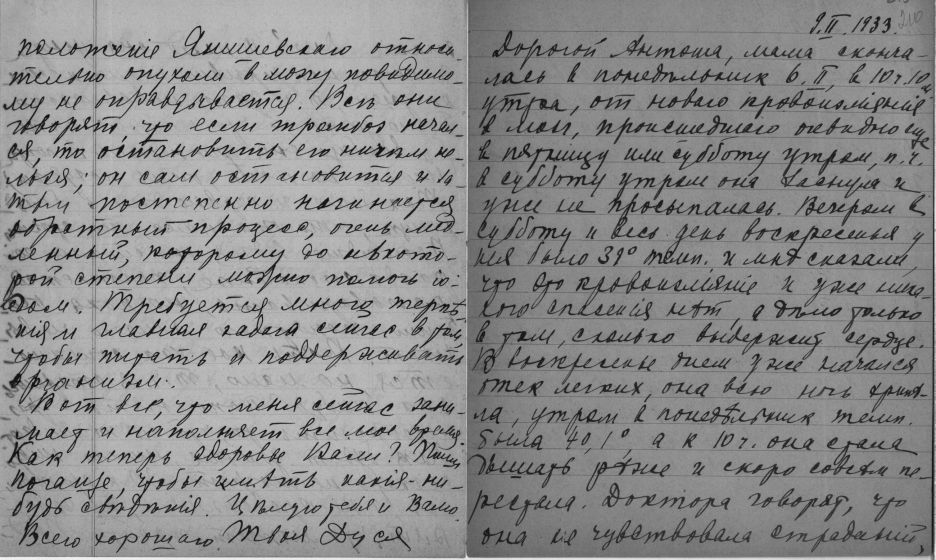 положеніе Янишевскаго относи-
тельно опухоли в мозгу повидимо-
му не оправдывается. Всѣ они
говорят, что если тромбоз начал-
ся, то остановить его ничѣм не-
льзя; он сам остановится и за-
тѣм постепенно начинается
обратный процесс, очень мед-
ленный, которому до нѣкото-
рой степени можно помочь іо-
дом. Требуется много терпѣ-
нія и главная задача сейчас в том,
чтобы питать и поддерживать
организм.
Вот все, что меня сейчас зани-
мает и наполняет все мое время.
Как теперь здоровье Вали? Пиши
почаще, чтобы имѣть какія-ни-
будь свѣдѣнія. Цѣлую тебя и Валю.
Всего хорошаго. Твоя Дуся
9.II.1933.
210
Дорогой Антоша, мама сконча-
лась в понедѣльник 6.II, в 10 ч. 10 м.
утра, от новаго кровоизліянія
в мозг, происшедшаго очевидно еще
в пятницу или субботу утром, п.ч.
в субботу утром она заснула и
уже не просыпалась. Вечером в
субботу и весь день воскресенья у
нея было 39° темп. и мнѣ сказали,
что это кровоизліяніе и уже ника-
кого спасенія нѣт, а дѣло только
в том, сколько выдержит сердце.
В воскресенье днем уже начался
отек легких, она всю ночь хрипѣ-
ла, утром в понедѣльник темп.
была 40,1°, а к 10 ч. она стала
дышать рѣже и скоро совсѣм пе-
рестала. Доктора говорят, что
она не чувствовала страданій,